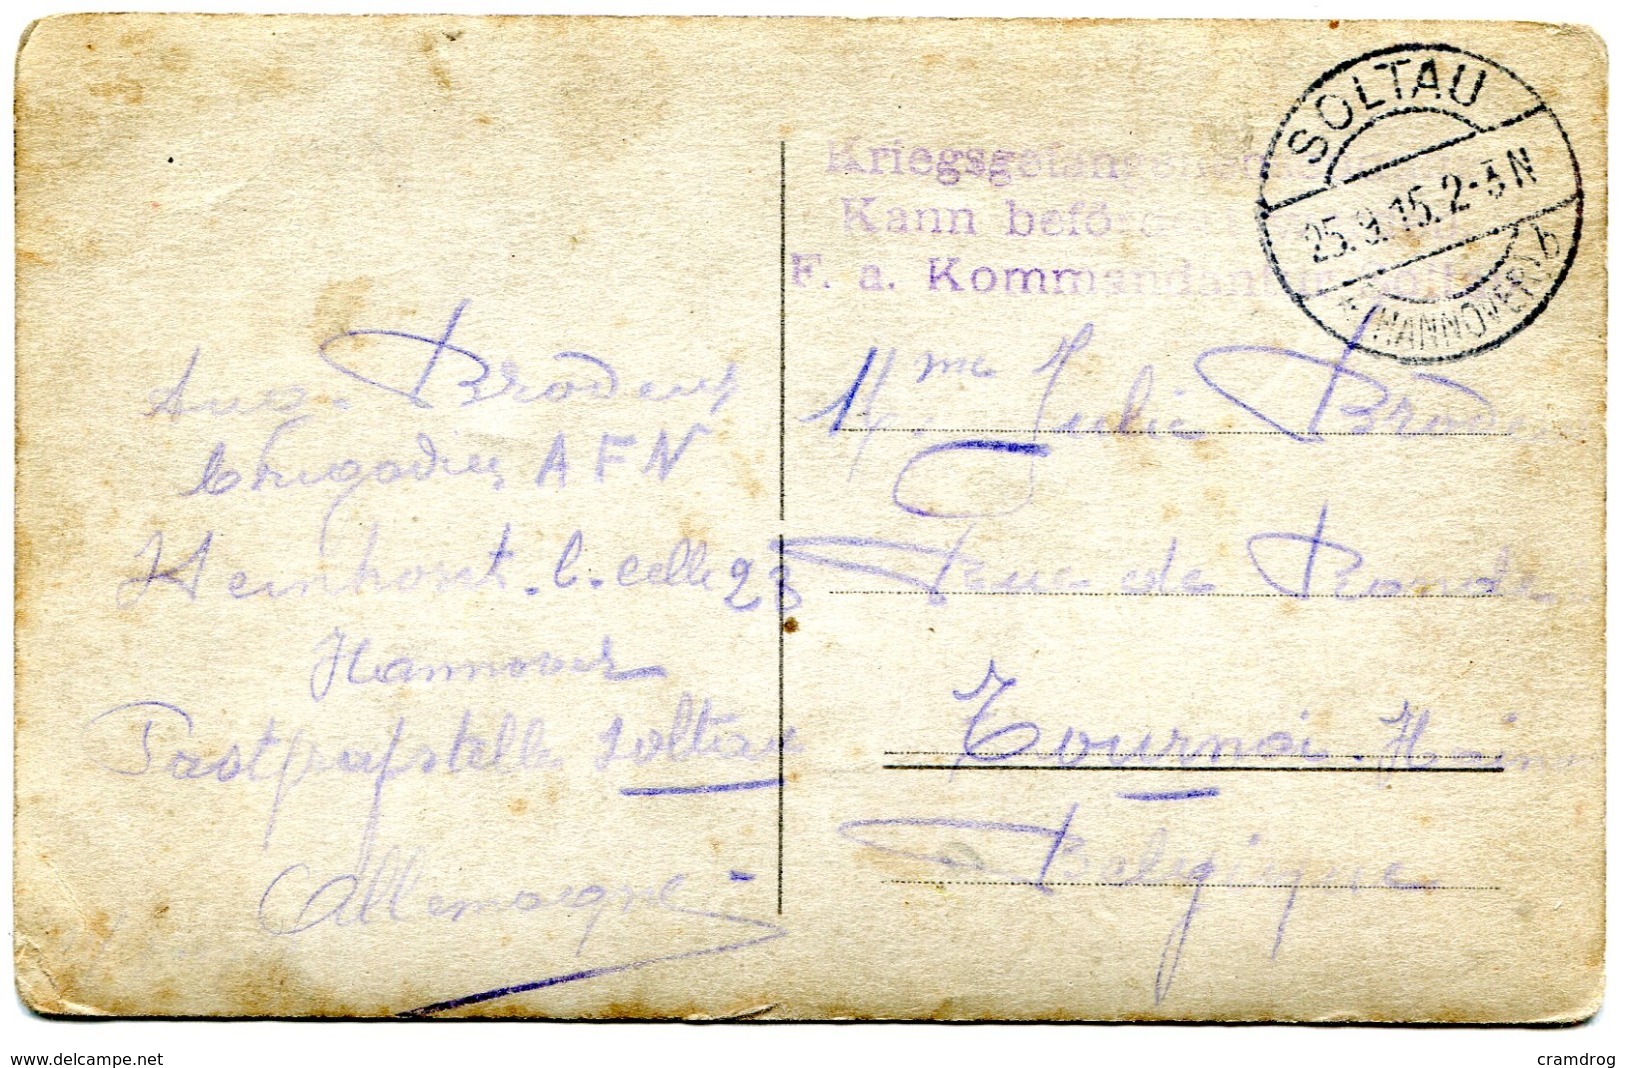 SOLTAU
25.9.15.2-3N
* (HANNOVER) b
Kriegsgefangenen
Kann befördert
F. a. Kommandantur
Aug. Brodeux
brigadier AFN
Hemhorst. b. celle 23
Hannover
Soltau
Allemagne -
Mme Julie Brodeux
Rue de
Tournai. Hain
Belgique
www.delcampe.net
cramdrog